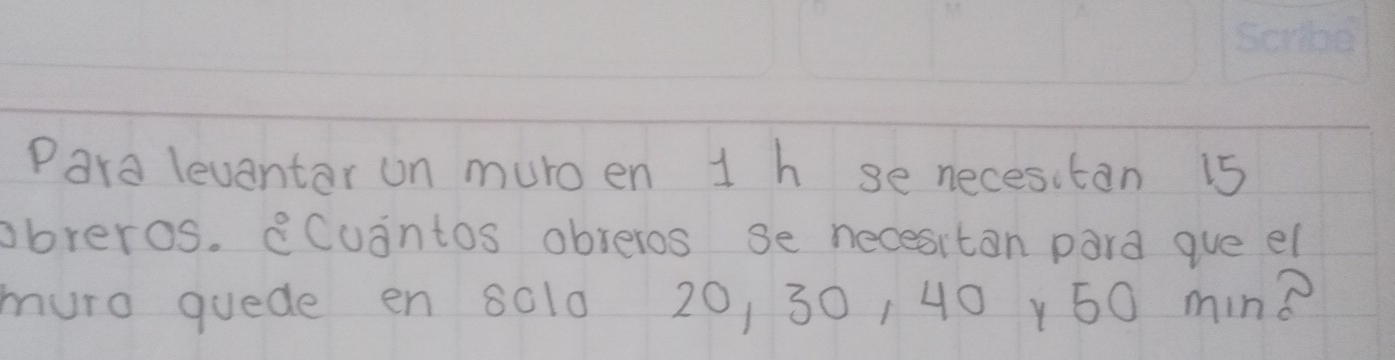 Scribe
Para levantar un muro en 1 h se necesitan 15
obreros. ¿Cuántos obreros se necesitan para que el
muro quede en solo 20, 30, 40 y 50 min?